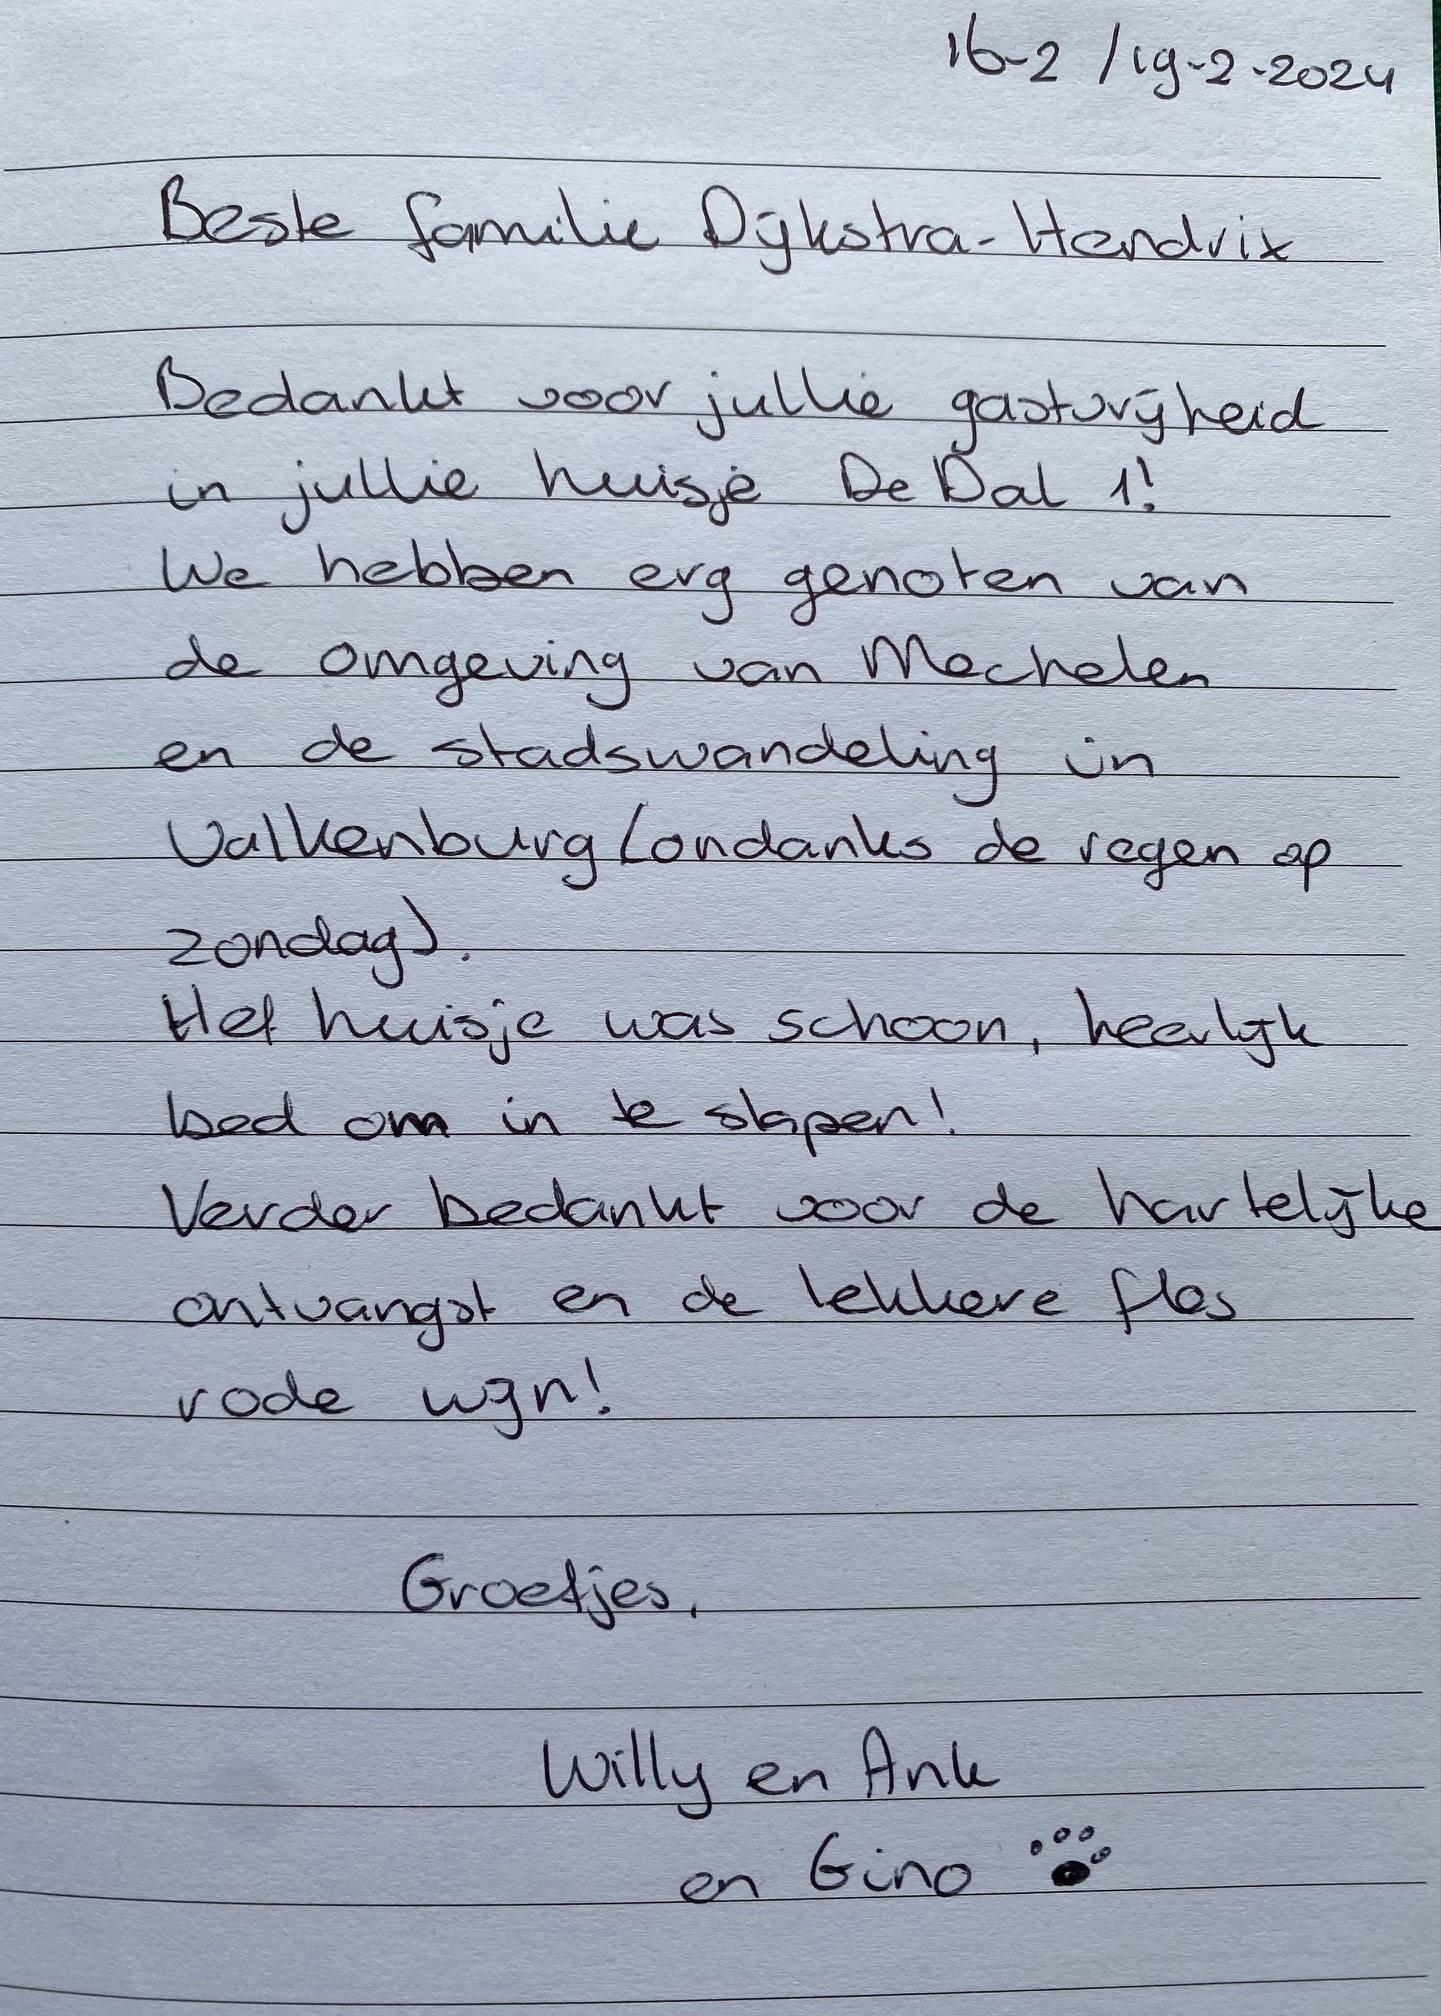 16-2 / 19-2-2024
Beste familie Dijkstra-Hendrix
Bedankt voor jullie gastvrijheid
in jullie huisje De Dal 1!
We hebben erg genoten van
de omgeving van Mechelen
en de stadswandeling in
Valkenburg (ondanks de regen op
zondag).
Het huisje was schoon, heerlijk
bed om in te slapen!
Verder bedankt voor de hartelijke
ontvangst en de lekkere fles
rode wijn!
Groetjes,
Willy en Ank
en Gino